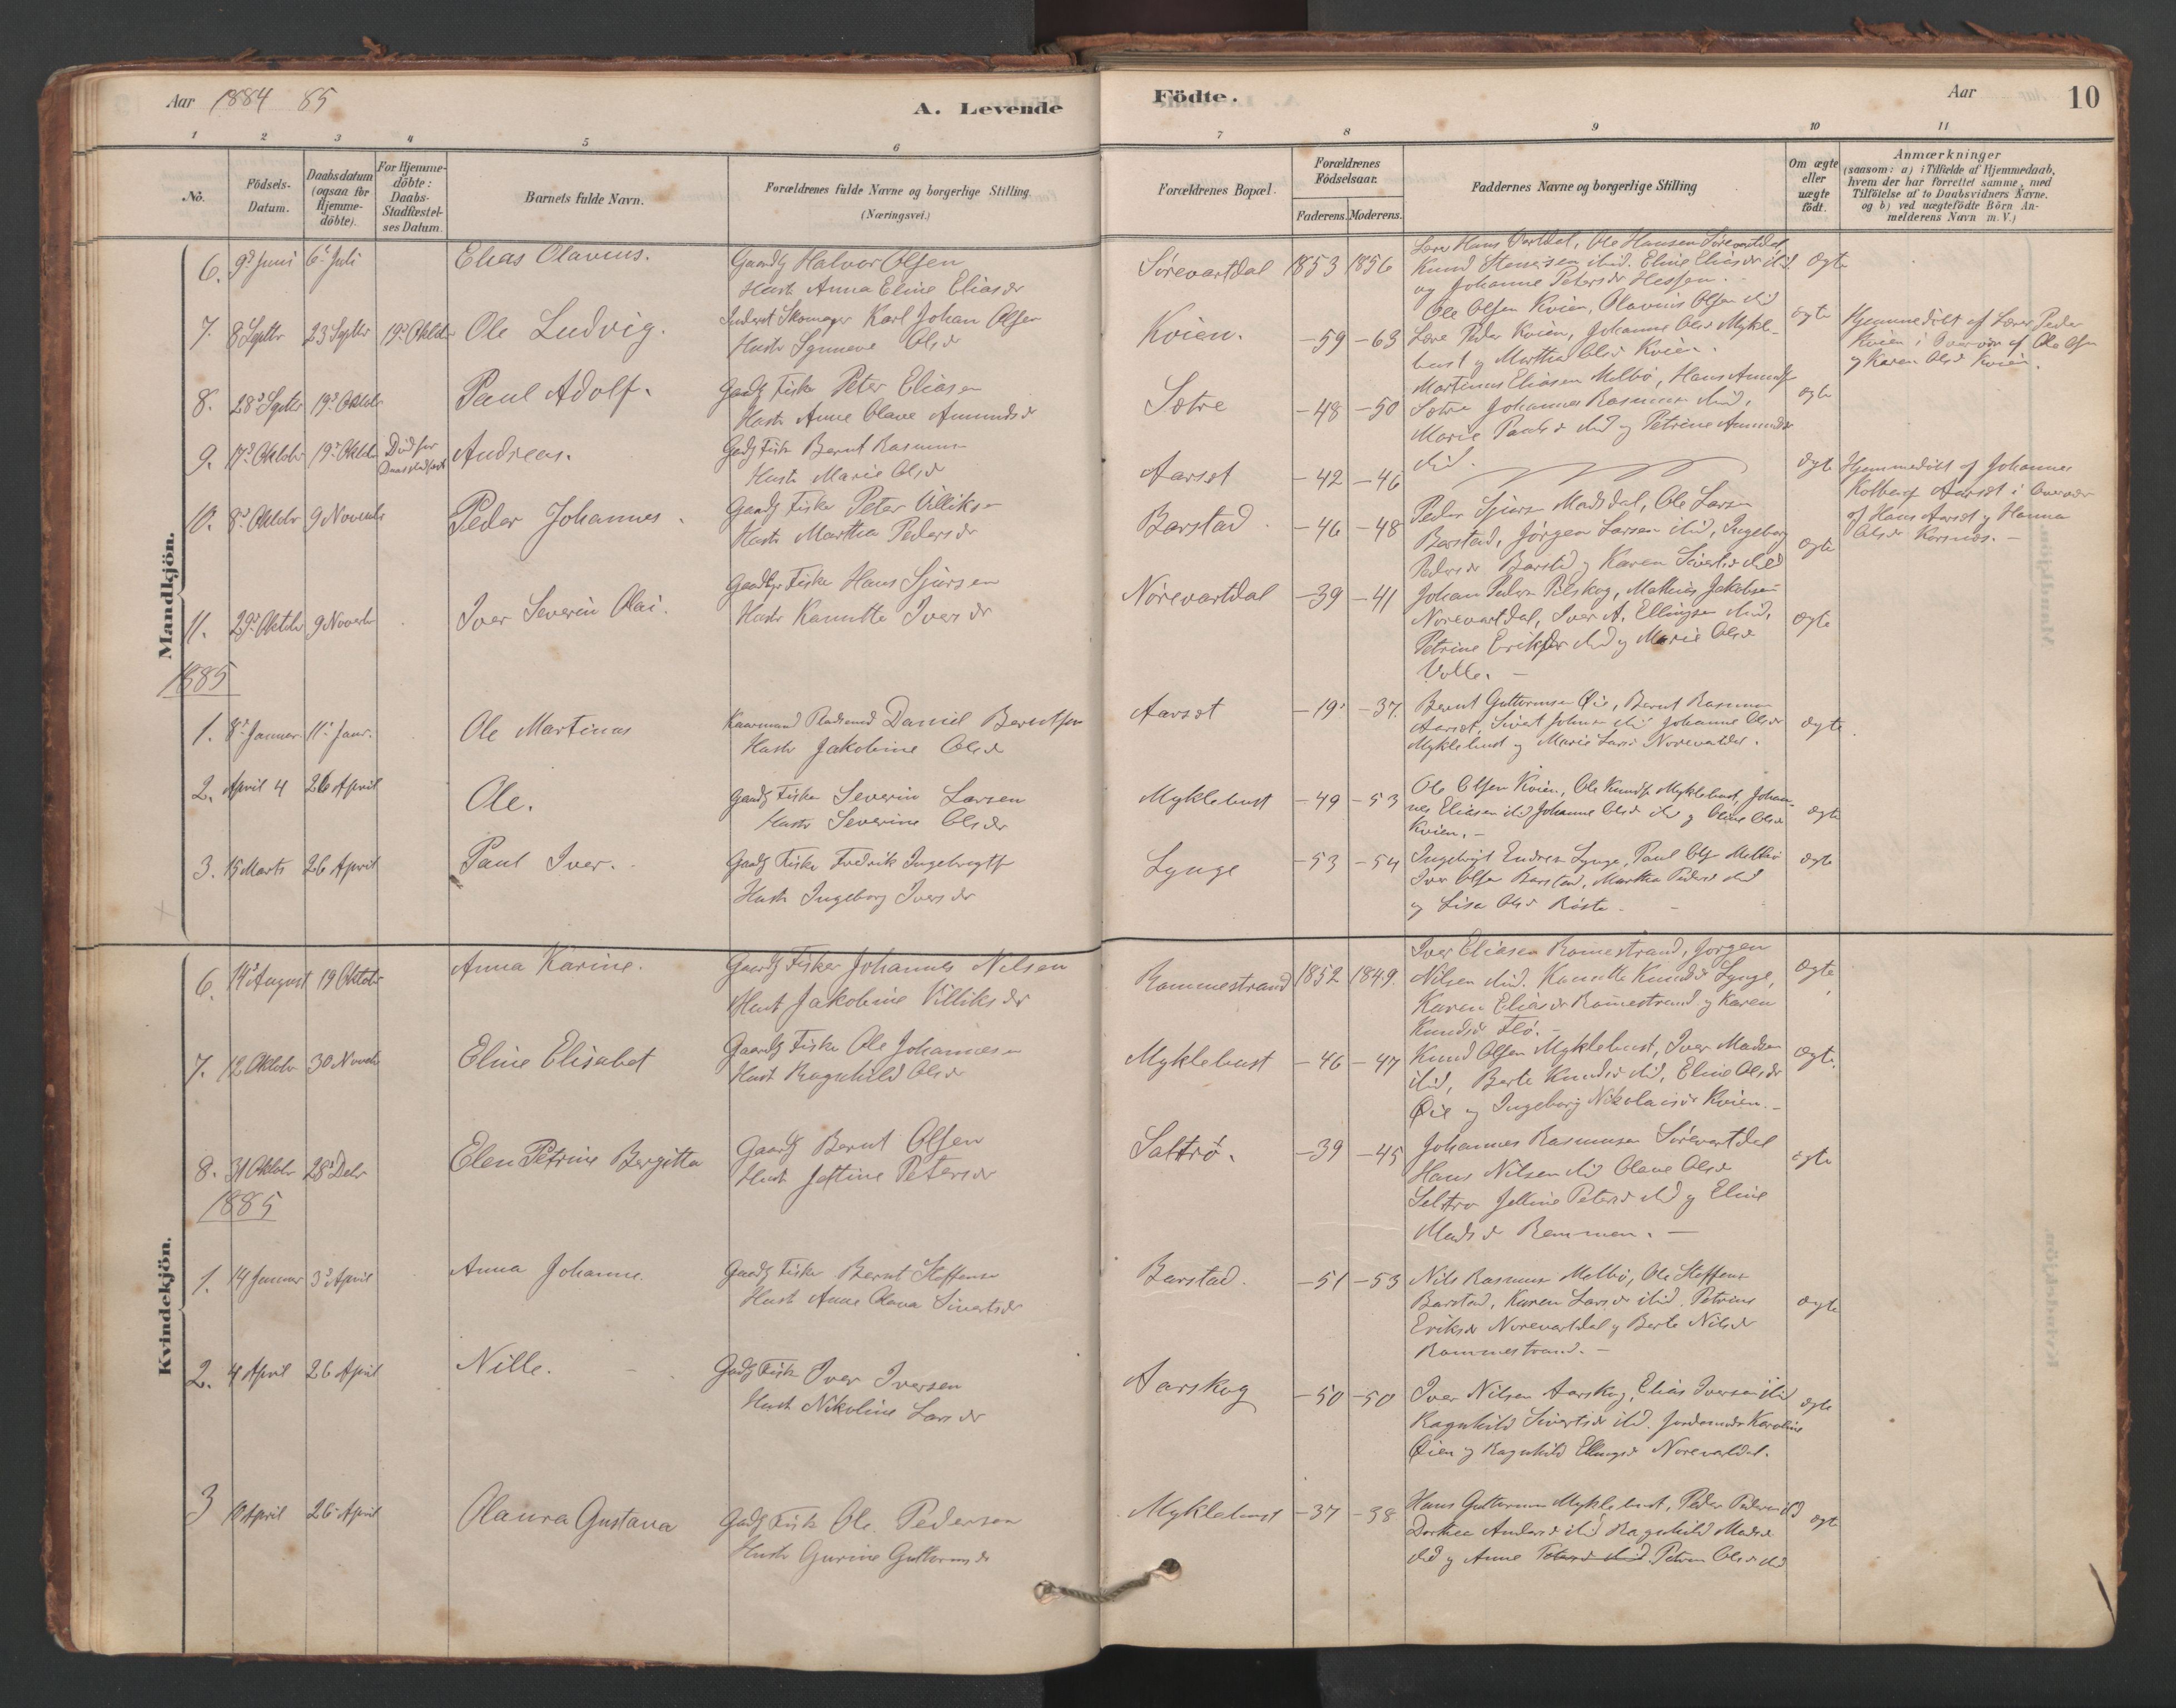 Aar 1884 85
A. Levende
Födte.
Aar
10
1 2 3 4 5 6 7 8 9 10 11
No.
Födsels-
Datum.
Daabsdatum
(ogsaa for
Hjemme-
döbte).
For Hjemme-
döbte:
Daabs-
Stadfæstel-
ses Datum.
Barnets fulde Navn.
Forældrenes fulde Navne og borgerlige Stilling.
(Næringsvei.)
Forældrenes Bopæl.
Forældrenes
Födselsaar.
Faderens. Moderens.
Faddernes Navne og borgerlige Stilling
Om ægte
eller
uægte
födt.
Anmærkninger
(saasom: a) i Tilfælde af Hjemmedaab,
hvem der har forrettet samme, med
Tilföielse af to Daabsvidners Navne.
og b) ved uægtefödte Börn An-
melderens Navn m. V.)
Mandkjön.
6. 9d Juni 6t Juli
Elias Olavius.
Gaardb Halvor Olsen
Hustr Anna Eline Eliasdr
Sörevartdal 1853 1856
Hans Vartdal, Ole Hansen Sörevartdal
Knud ibid. Eline Eliasdr ibid
og Johanne Petersdr
ægte
7. 8 Septbr 23 Septbr 19d Oktobr
Ole Ludvig.
Inderst Skomager Karl Johan Olsen
Hustr Synneve Olsd
Kvien. -59 -63
Ole Olsen Kvien, Olavius Olsen ibid
Lærer Peder Kvien, Johanne Olsd Mykle-
bust og Martha Olsd Kvien.
ægte
Hjemmedöbt af Lærer Peder
Kvien i Overvær af Ole Olsen
og Karen Olsd Kvien.
8. 28d Septbr 19d Oktobr
Paul Adolf.
Gaardb Fisker Peter Eliasen
Hustr Anne Olave Amundsdr
Sætre -48 -50
Martinus Eliasen Melbö, Hans Amunds
Sætre Johannes Rasmusen ibid,
Marie Paulsd ibid og Petrine Amundsdr
ibid.
ægte
9. 17d Oktobr 19d Oktobr Död för
Daabsstadfæst
Andreas.
Gaardb Fisker Bernt Rasmusen
Hustr Marie Olsd
Aarset -42 -46
ægte
Hjemmedöbt af Johannes
Kolberg Aarset i Overvær
af Hans Aarset og Hanna
Olsd Korsnæs.
10. 8d Oktobr 9 Novembr
Peder Johannes.
Gaardb Fisker Peter Villiksen
Hustr Martha Pedersdr
Barstad -46 -48
Peder Sjursen Masdal, Ole Larsen
Barstad, Jörgen Larsen ibid, Ingeborg
Pedersdr Barstad og Karen Sivertsd ibid
ægte
11. 29d Oktobr 9 Novembr
Iver Severin Olai.
Gaardbr Fisker Hans Sjursen
Hustr Kanutte Iversdr
Nörevartdal -39 -41
Johan Peder Pilskog, Mathias Jakobsen
Norevartdal, Iver A. Ellingsen ibid,
Petrine Eriksdr ibid og Marie Olsd
Volle.
ægte
1885
1. 8d Januar 11t Janr.
Ole Martinus
Kaarmand Pladsmd Daniel Berntsen
Hustr Jakobine Olsd
Aarset -19 -37.
Bernt Guttormsen Öie, Bernt Rasmusen
Aarset, Sivert Johnsen ibid Johanne Olsdr
Myklebust og Marie Larsd Norevartdal.
ægte
2. April 4 26 April
Ole.
Gaardb Fisker Severin Larsen
Hustr Severine Olsdr
Myklebust -49 -53
Ole Olsen Kvien, Ole Knuds Myklebust, Johan-
nes Eliasen ibid Johanne Olsd ibid og Oline Olsd
Kvien.
ægte
3. 15 Marts 26 April
Paul Iver.
Gaardb Fisker Fredrik Ingebrigts
Hustr Ingeborg Iversdr
Lynge -53 -54
Ingebrigt Endresen Lynge, Paul Ols Melbö
Iver Olsen Barstad, Martha Pedersd ibid
og Lisa Olsd Röste
ægte
Kvindekjön.
6. 14d August 19 Oktobr
Anna Karine.
Gaardb Fisker Johannes Nilsen
Hust Jakobine Villiksdr
Rommestrand 1852 1849.
Iver Eliasen Romestrand, Jorgen
Nilsen ibid. Kanutte Knudsd Lynge,
Karen Eliasdr Romestrand og Karen
Knudsd Flö.
ægte
7. 12 Oktobr 30 Novbr
Eline Elisabet
Gaardb Fisker Ole Johannesen
Hust Ragnhild Olsdr
Myklebust -46 -47
Knud Olsen Myklebust, Iver Madsen
ibid, Berte Knudsd ibid, Eline Olsdr
Öie og Ingeborg Nikolaisdr Kvien.
ægte
8. 31 Oktobr 28d Debr
Elen Petrine Bergitta
Gaardb Bernt Olsen
Hust Jettine Petersdr
Saltrö. -39 -45
Johannes Rasmusen Sörevartdal
Hans Nilsen ibid Olave Olsd
Seltro Jettine Petersd ibid og Eline
Madsdr Remmen.
ægte
1885
1. 14 Januar 3d April
Anna Johanne.
Gaardb Fisker Bernt Steffensen
Hust Anne Olava Sivertsdr
Barstad. -51 -53
Nils Rasmusen Melbö, Ole Steffens
Barstad, Karen Larsdr ibid. Petrine
Eriksdr Norevartdal og Berte Nilsdr
Rommestrand.
ægte
2. 4 April 26 April
Nille.
Gaardb Fisker Iver Iversen
Hust Nikoline Larsdr
Aarskog -50 -50
Iver Nilsen Aarskog, Elias Iversen ibid
Ragnhild Sivertsdr ibid. Jordemoder Karoline
Öien og Ragnhild Ellingsd Norevartdal.
ægte
3 10 April 26 April
Olaura Gustava
Gaardb Fisker Ole Pedersen
Hustr Gurine Guttormsdr
Myklebust -37 -38
Hans Guttormsen Myklebust, Peder Pedersen ibid
Dorthea Andersd ibid Ragnhild Madsd
ibid og Anne Petrine Olsdr ibid
ægte